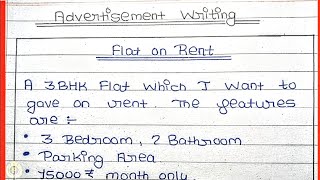 Advertisement Writing
Flat on Rent
A 3BHK Flat which I want to
gave on rent. The features
are :-
• 3 Bedroom, 2 Bathroom
• Parking Area
• 15000 ₹ month only.